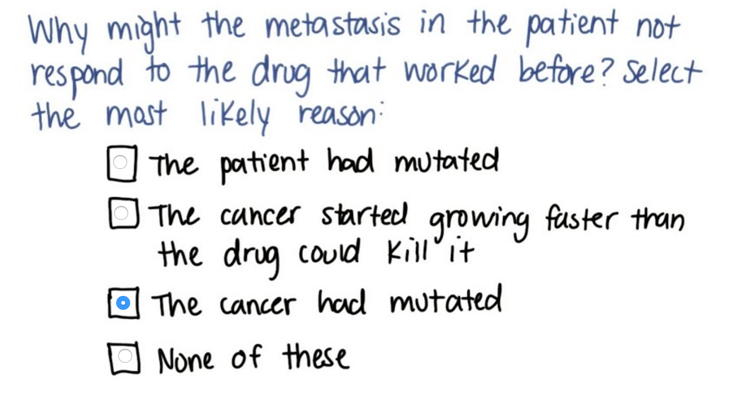 Why might the metastasis in the patient not
respond to the drug that worked before? Select
the most likely reason:
The patient had mutated
The cancer started growing faster than
the drug could kill it
The cancer had mutated
None of these